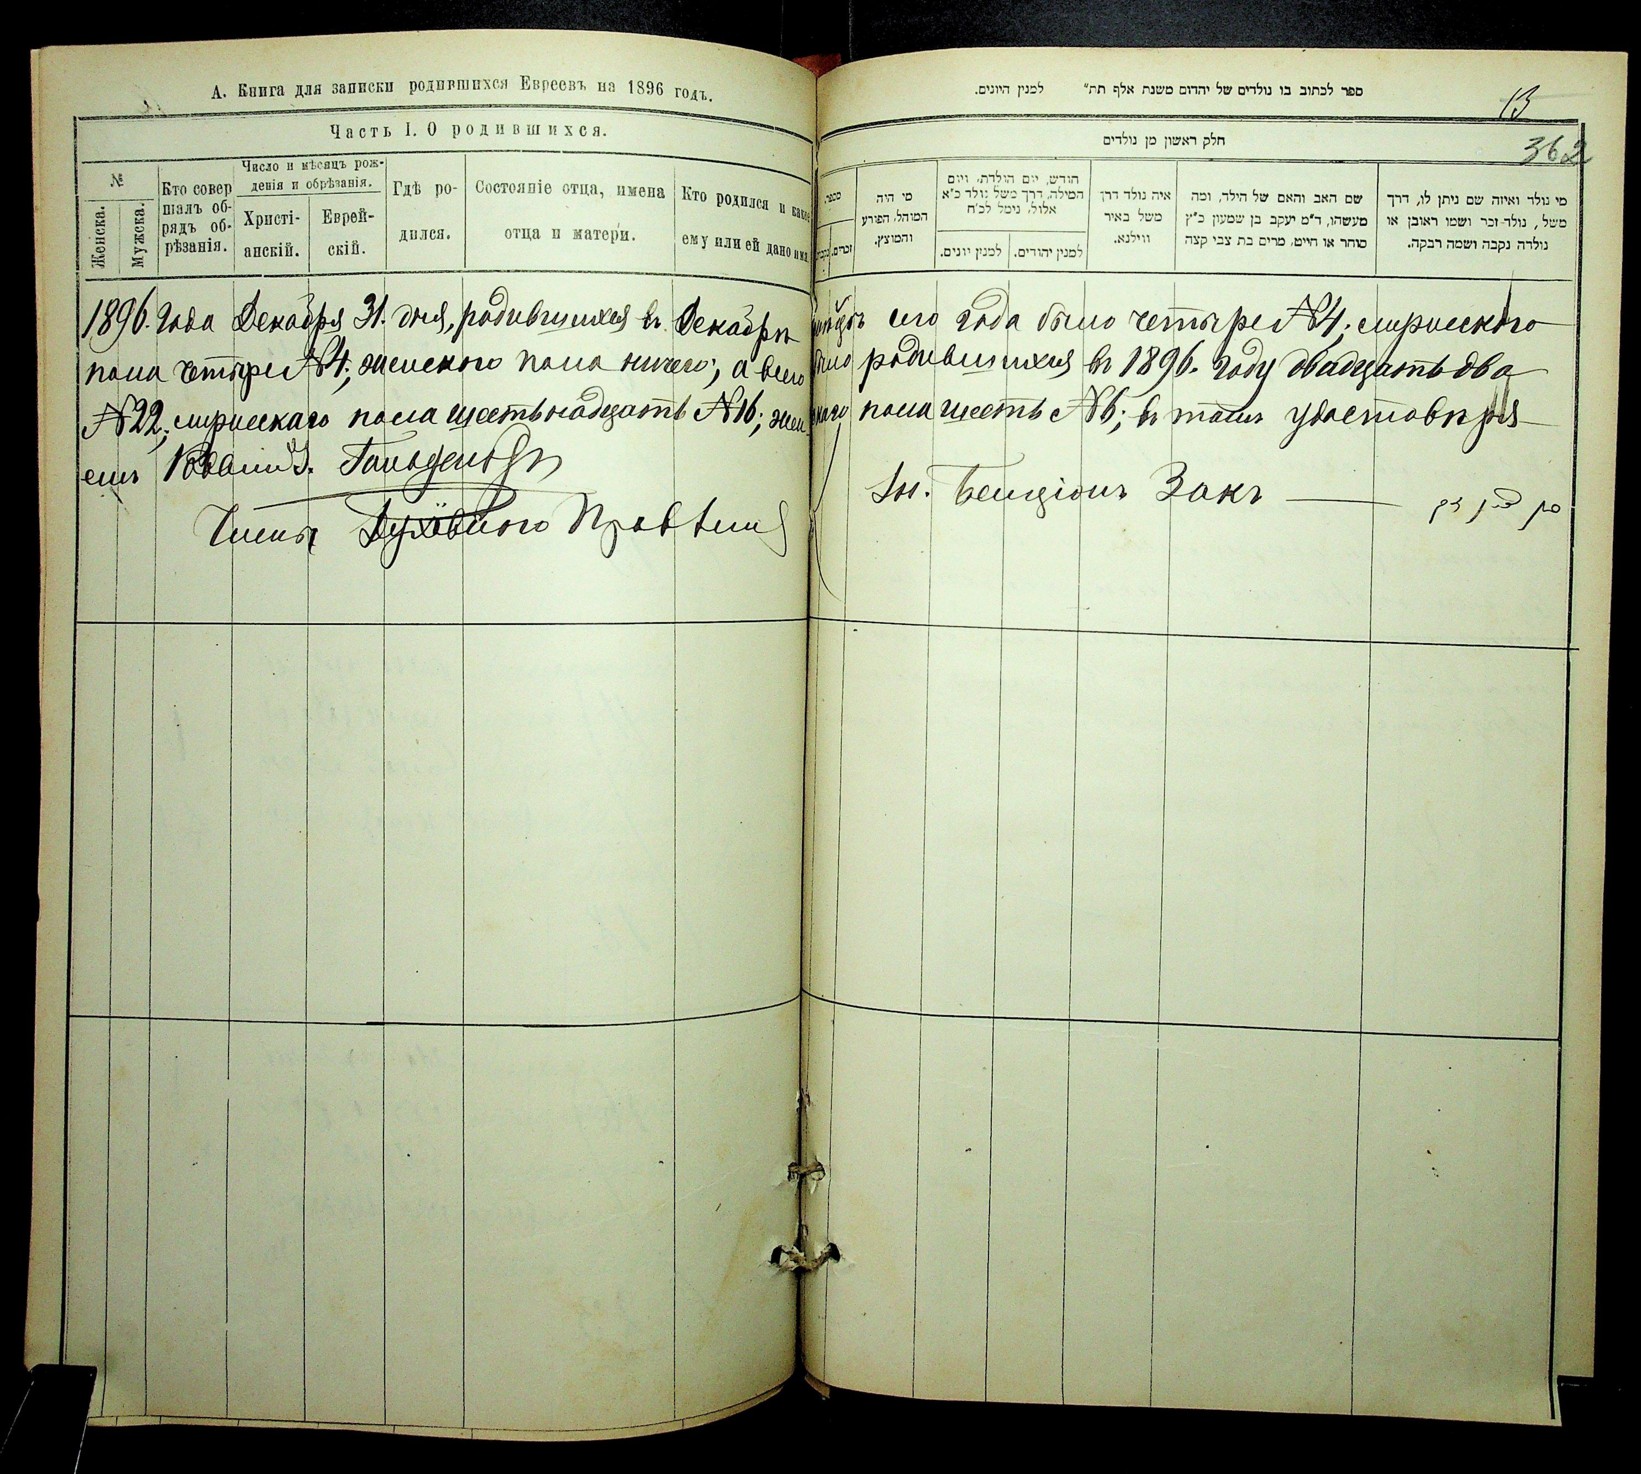 А. Книга для записки родившихся Евреевъ на 1896 годъ.
Часть I. О родившихся.
№
Женска.
Мужска.
Кто совер
шалъ об-
рядъ об-
рѣзанія.
Число и мѣсяцъ рож-
денія и обрѣзанія.
Христі-
анскій.
Еврей-
скій.
Гдѣ ро-
дился.
Состояніе отца, имена
отца и матери.
Кто родился и какое
ему или ей дано имя
1896. Года Декабря 31. дня, родившихся въ Декабрѣ
пола четыре №4; женскаго пола ничего; а всего
№22; мужескаго пола шестьнадцать №16; жен
емъ Раввинъ. Гольденбергъ
Члены Духовнаго Правленія
ספר לכתוב בו נולדים של יהדום משנת אלף תת״ למנין היונים.
13
362
חלק ראשון מן נולדים
מספר.
זכרים.
מי היה
המוהל, הפורע
והמוצץ.
חודש, יום הולדת, ויום
המילה, דרך משל נולד כ״א
אלול, נימל לכ״ח
למנין יונים.
למנין יהודים.
איה נולד דרך
משל באיר
ווילנא.
שם האב והאם של הילד, ומה
מעשהו, ד״מ יעקב בן שמעון כ״ץ
סוחר או חייט, מרים בת צבי קצה
מי נולד ואיזה שם ניתן לו, דרך
משל, נולד-זכר ושמו ראובן או
נולדה נקבה ושמה רבקה.
сего года было четыре №4; мужескаго
было родившихся въ 1896. году двадцать два
скаго пола шесть №6; въ томъ удостовѣря
Бенціонъ Закъ